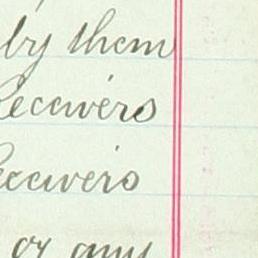 by them
Receivers
Receivers
or any